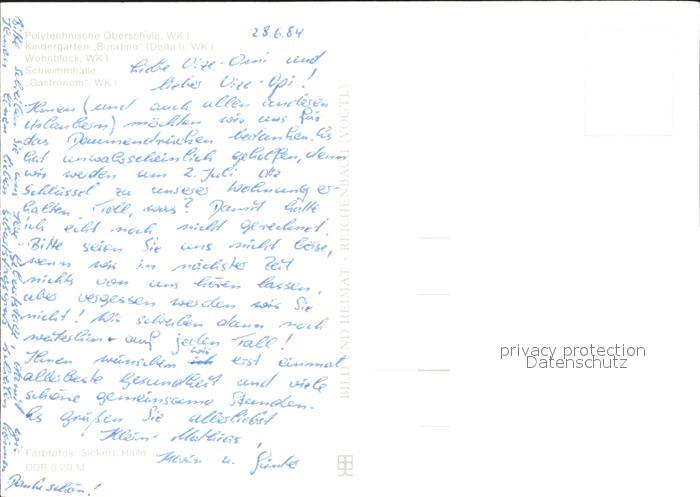 Polytechnische Oberschule, WK I
Kindergarten „Buratino" (Delta I), WK I
Wohnblock, WK I
Schwimmhalle
„Gastronom", WK I
28.6.84
Liebe Vize-Omi und
lieber Vize-Opi!
Ihnen (und auch allen anderen
Urlaubern) möchten wir uns für
das Daumendrücken bedanken. Es
hat unwahrscheinlich geholfen, denn
wir werden am 2. Juli die
Schlüssel zu unserer Wohnung er-
halten. Toll, was? Damit hätte
ich echt noch nicht gerechnet.
Bitte seien Sie uns nicht böse,
wenn wir in nächster Zeit
nichts von uns hören lassen,
aber vergessen werden wir Sie
nicht! Wir schreiben dann noch
weiterhin auf jeden Fall!
Ihnen wünschen wir erst einmal
alles beste Gesundheit und viele
schöne gemeinsame Stunden.
Es grüßen Sie allerliebst
Klein Mathias,
u. Günter
Farbfotos: Sickert, Halle
DDR 0,20 M
Bitte schreiben Sie uns Ihre
Ihnen einen lieben können
Dankeschön!
BILD UND HEIMAT · REICHENBACH (VOGTL)
privacy protection
Datenschutz